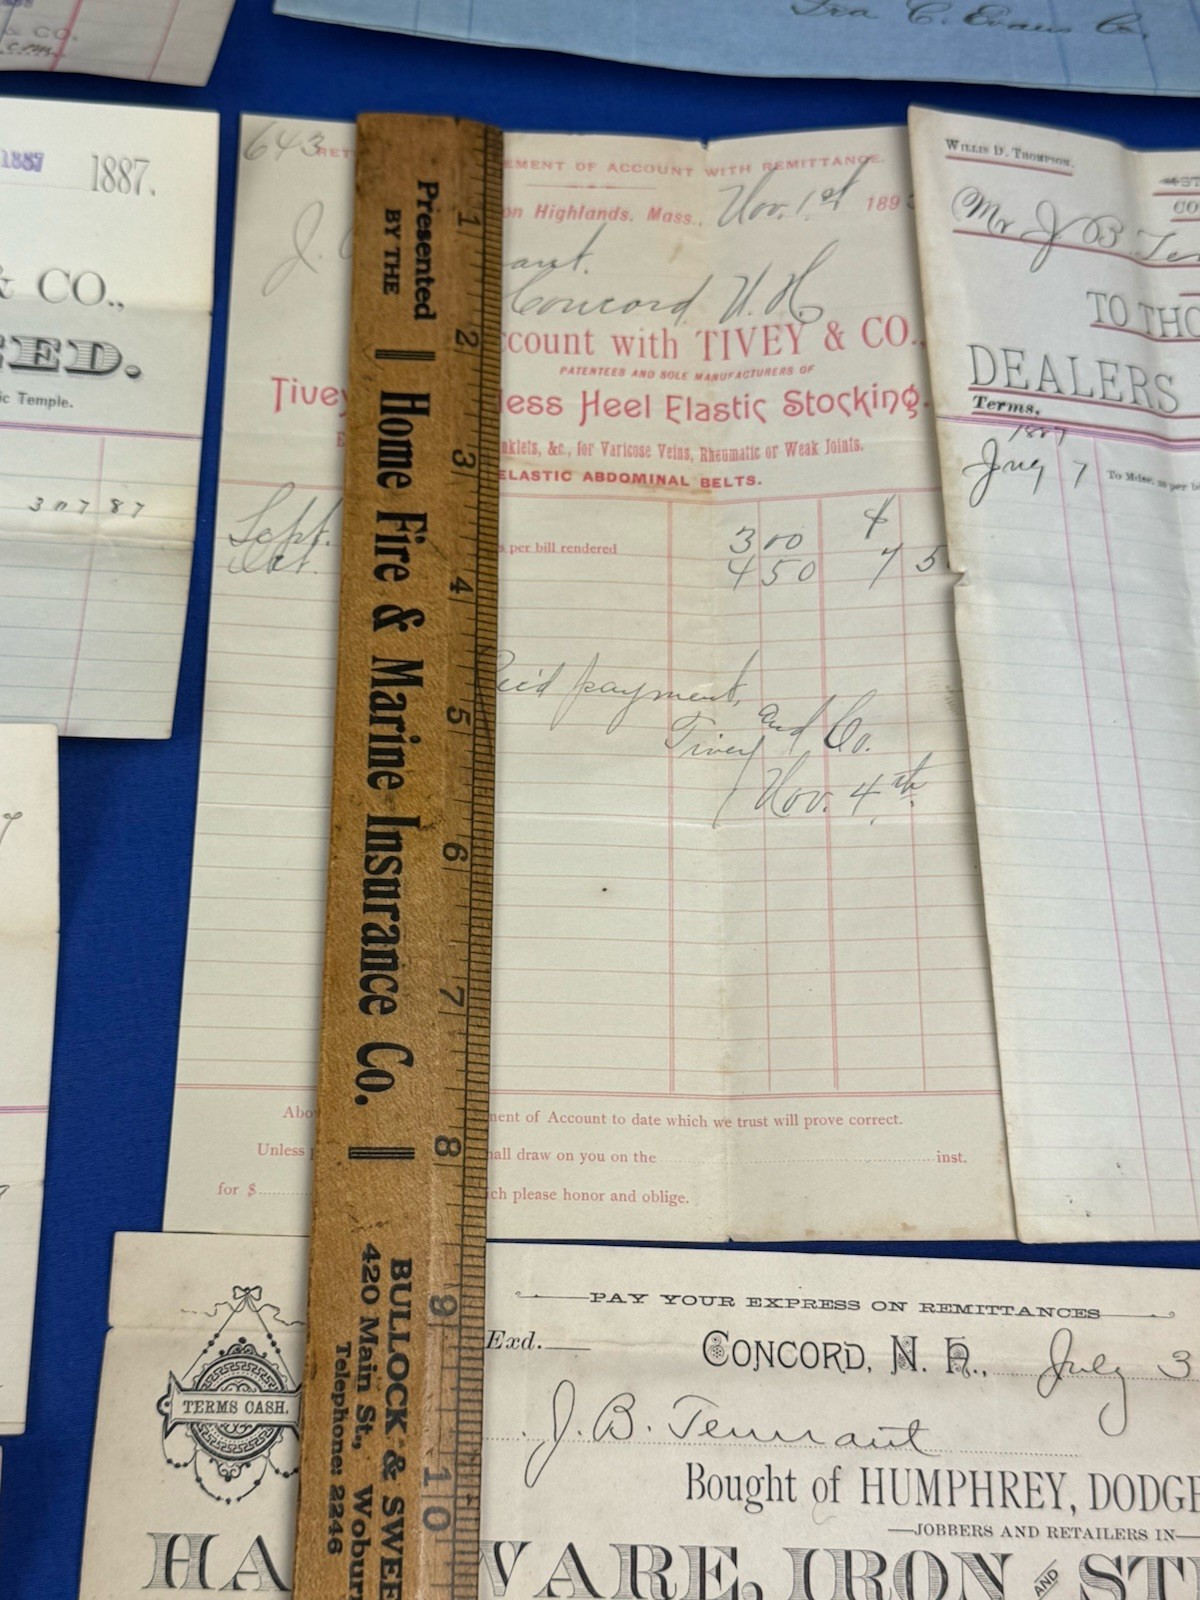 & CO.
Ira C. Evans Co.
1887 1887.
& CO.,
ic Temple.
307 87
643
EMENT OF ACCOUNT WITH REMITTANCE.
on Highlands, Mass., Nov. 1st 189
J.
ant.
Concord N. H
ccount with TIVEY & CO.,
PATENTEES AND SOLE MANUFACTURERS OF
Tivey
less Heel Elastic Stocking.
nklets, &c., for Varicose Veins, Rheumatic or Weak Joints.
ELASTIC ABDOMINAL BELTS.
Sept. s per bill rendered 3 00 $
Oct. 4 50 7 5
Rec'd payment,
Tivey and Co.
Nov. 4th
Abo
ment of Account to date which we trust will prove correct.
Unless
hall draw on you on the inst.
for $
ch please honor and oblige.
Presented
BY THE
Home Fire & Marine Insurance Co.
BULLOCK & SWEE
420 Main St., Woburn
Telephone: 2246
1 2 3 4 5 6 7 8 9 10
WILLIS D. THOMPSON.
ST
CO
Mr J. B. Ten
TO THO
DEALERS
Terms,
1887
July 7 To Mdse. as per b
PAY YOUR EXPRESS ON REMITTANCES
Exd.
CONCORD, N. H., July 3
TERMS CASH.
J. B. Tennant
Bought of HUMPHREY, DODGE
JOBBERS AND RETAILERS IN
HA
WARE, IRON AND ST